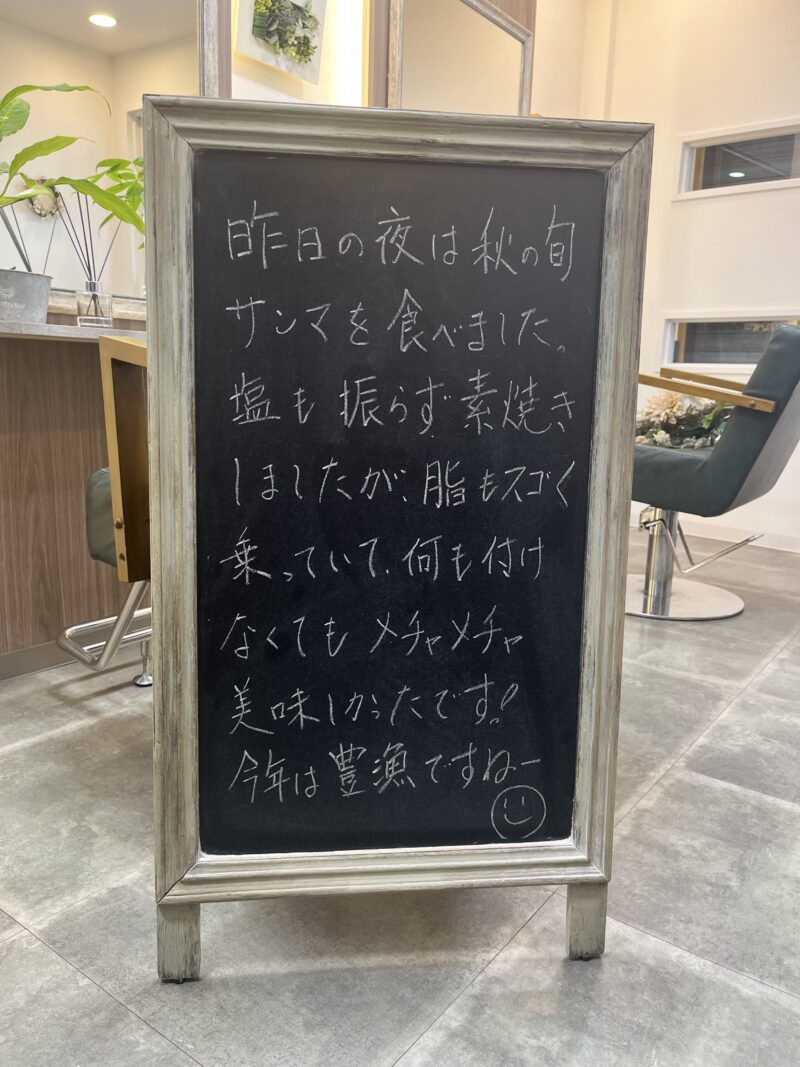 昨日の夜は秋の旬
サンマを食べました。
塩も振らず素焼き
しましたが、脂もスゴく
乗っていて、何も付け
なくてもメチャメチャ
美味しかったです!
今年は豊漁ですねー